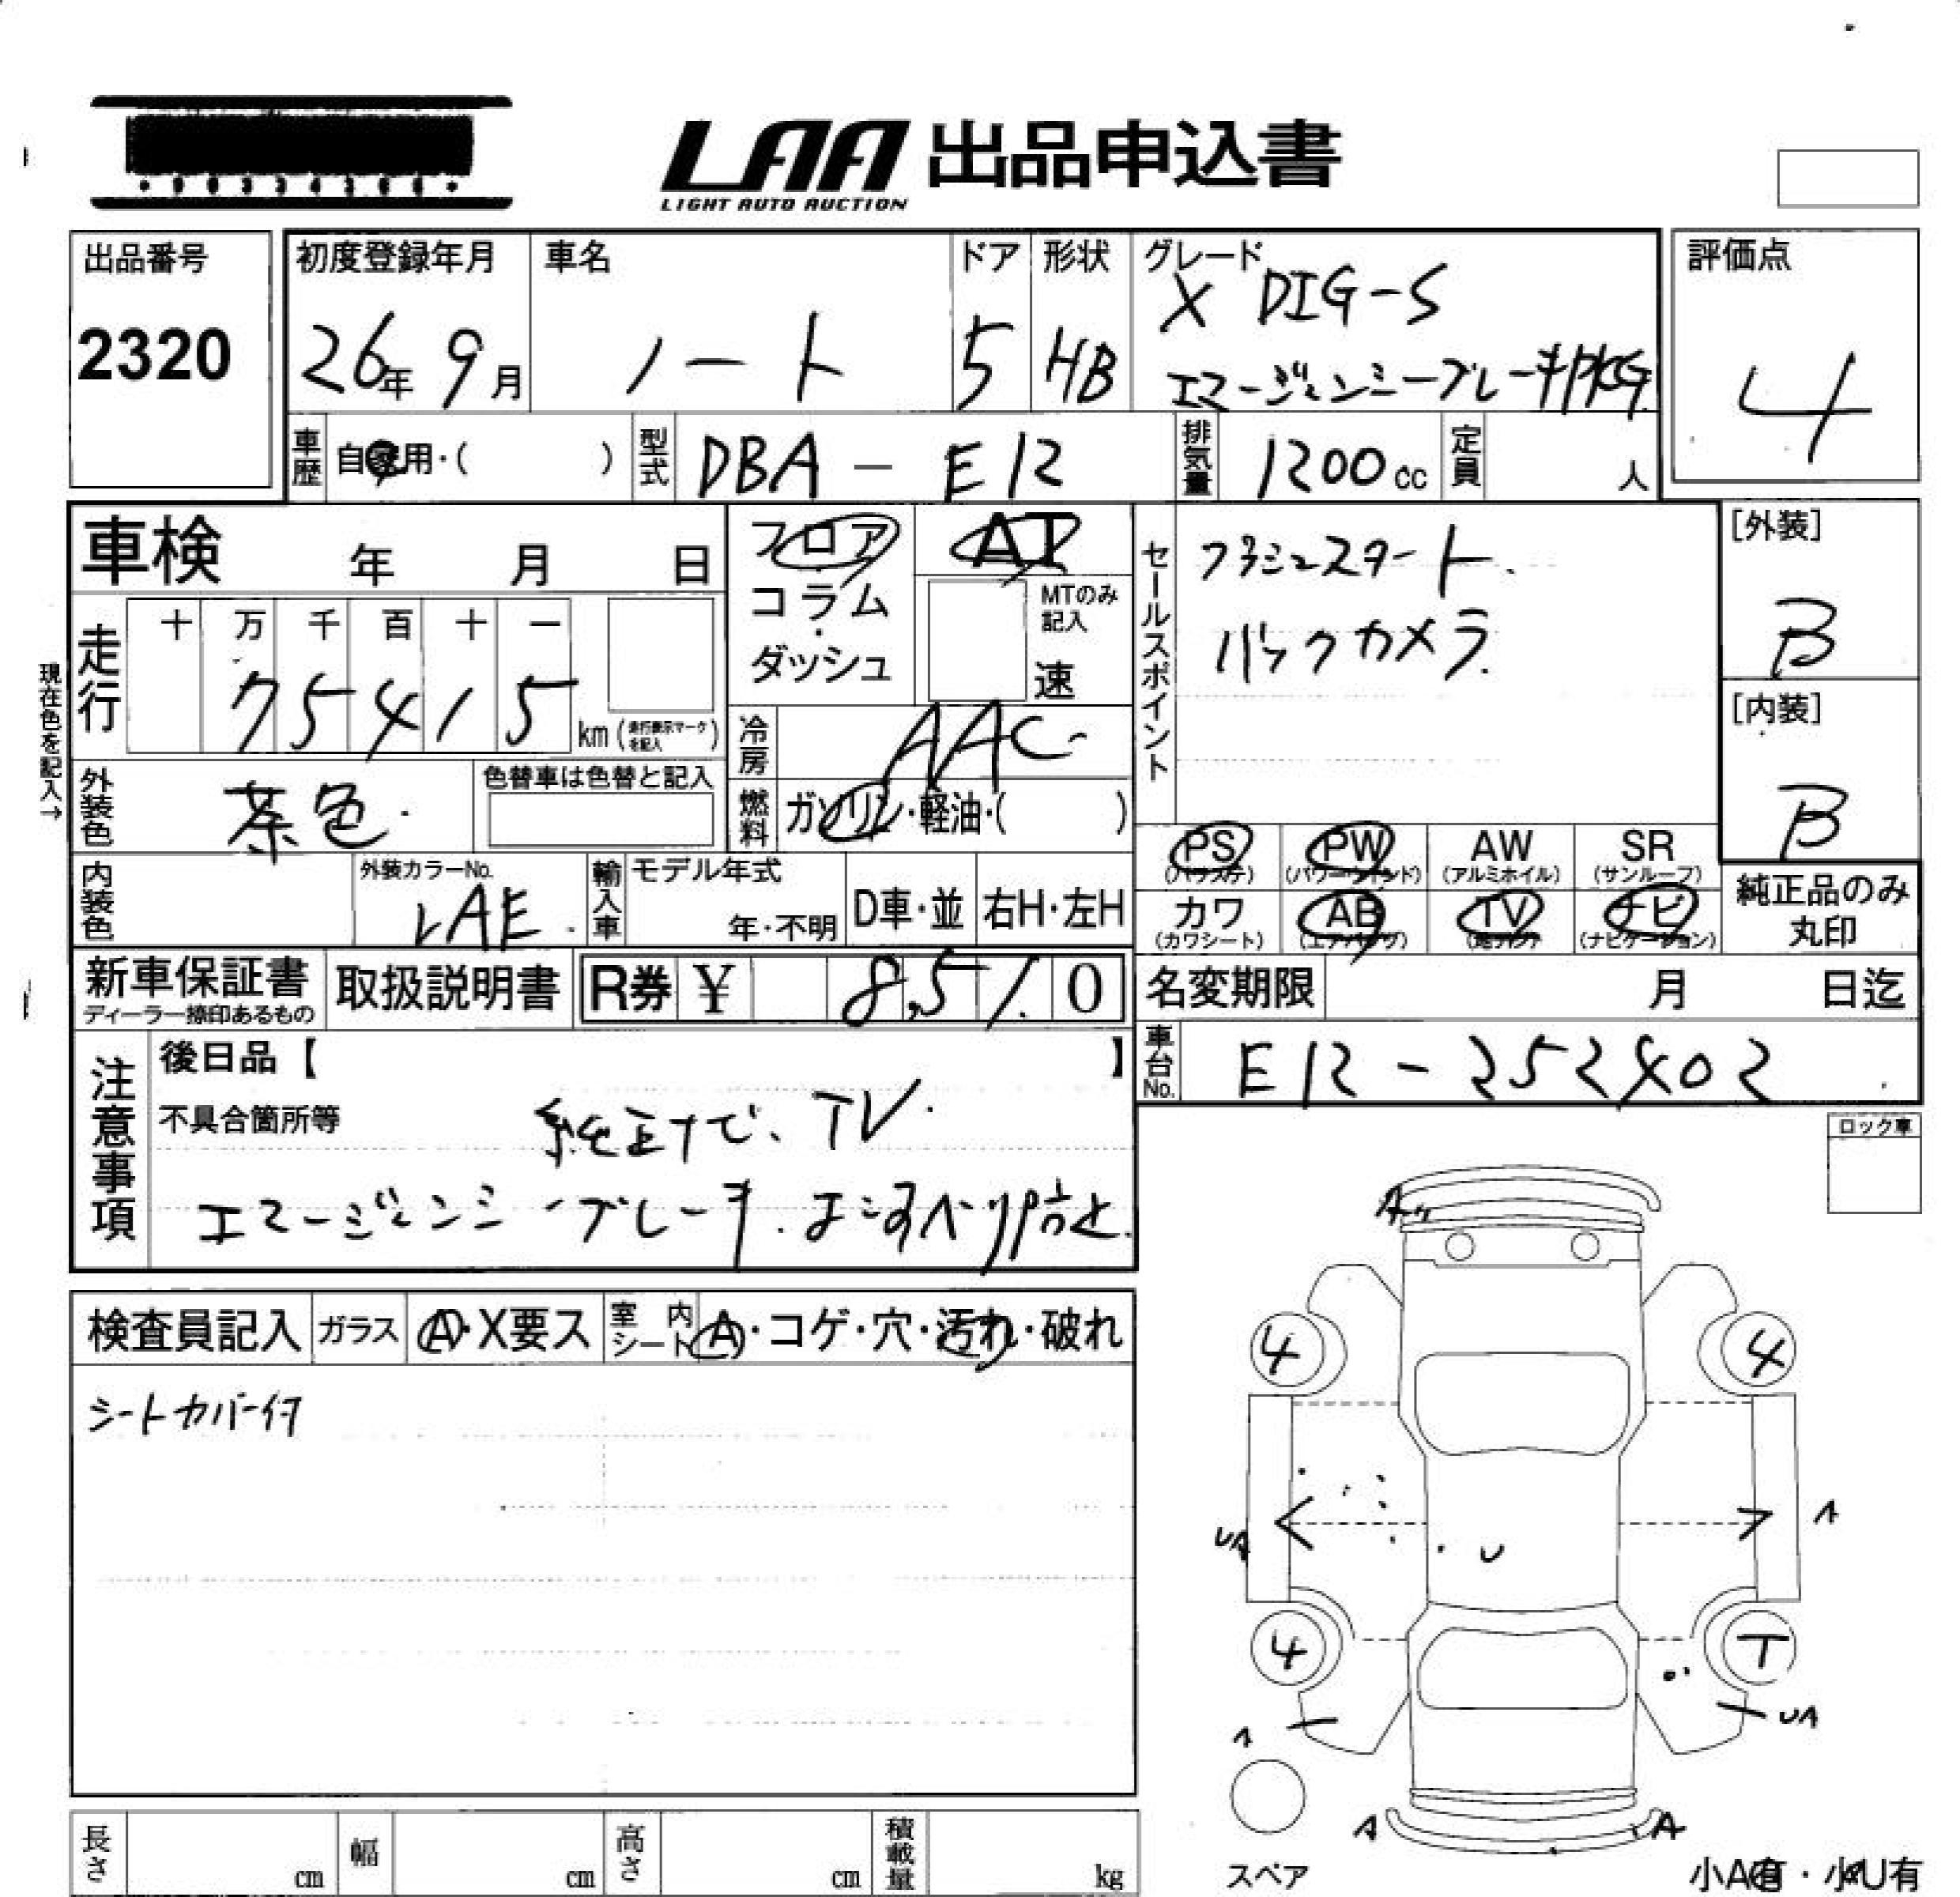 LAA 出品申込書
LIGHT AUTO AUCTION
出品番号
2320
初度登録年月
26年 9月
車名
ノート
ドア
5
形状
HB
グレード
X DIG-S
エマージェンシーブレーキPKG
評価点
4
車歴
自家用・( )
型式
DBA - E12
排気量
1200cc
定員
人
車検 年 月 日
フロア
コラム
・
ダッシュ
AT
MTのみ
記入
速
セールスポイント
プッシュスタート.
バックカメラ.
[外装]
B
[内装]
B
現在色を記入→
走行
十 万 千 百 十 一
7 5 4 1 5
km (走行表示マークを記入)
冷房
AAC
外装色
茶色
色替車は色替と記入
燃料
ガソリン・軽油・( )
PS (パワステ)
PW (パワーウインド)
AW (アルミホイル)
SR (サンルーフ)
カワ (カワシート)
AB (エアバッグ)
TV
ナビ (ナビゲーション)
純正品のみ
丸印
内装色
外装カラーNo.
LAE
輸入車
モデル年式
年・不明
D車・並
右H・左H
新車保証書
ディーラー捺印あるもの
取扱説明書
R券 ¥ 8,5 / . 0
名変期限 月 日迄
車台No.
E12 - 252402
注意事項
後日品【 】
不具合箇所等
純正ナビ、TV.
エマージェンシーブレーキ. よこすべり防止.
ロック車
検査員記入
ガラス
A・X要ス
室内
シート
A・コゲ・穴・汚れ・破れ
シートカバー付
A
4
4
UA
U
A
4
T
A
UA
A
A
スペア
小A有・小U有
長さ cm
幅 cm
高さ cm
積載量 kg